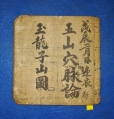 戊辰二月日
玉山穴脉論
玉龍子山圖